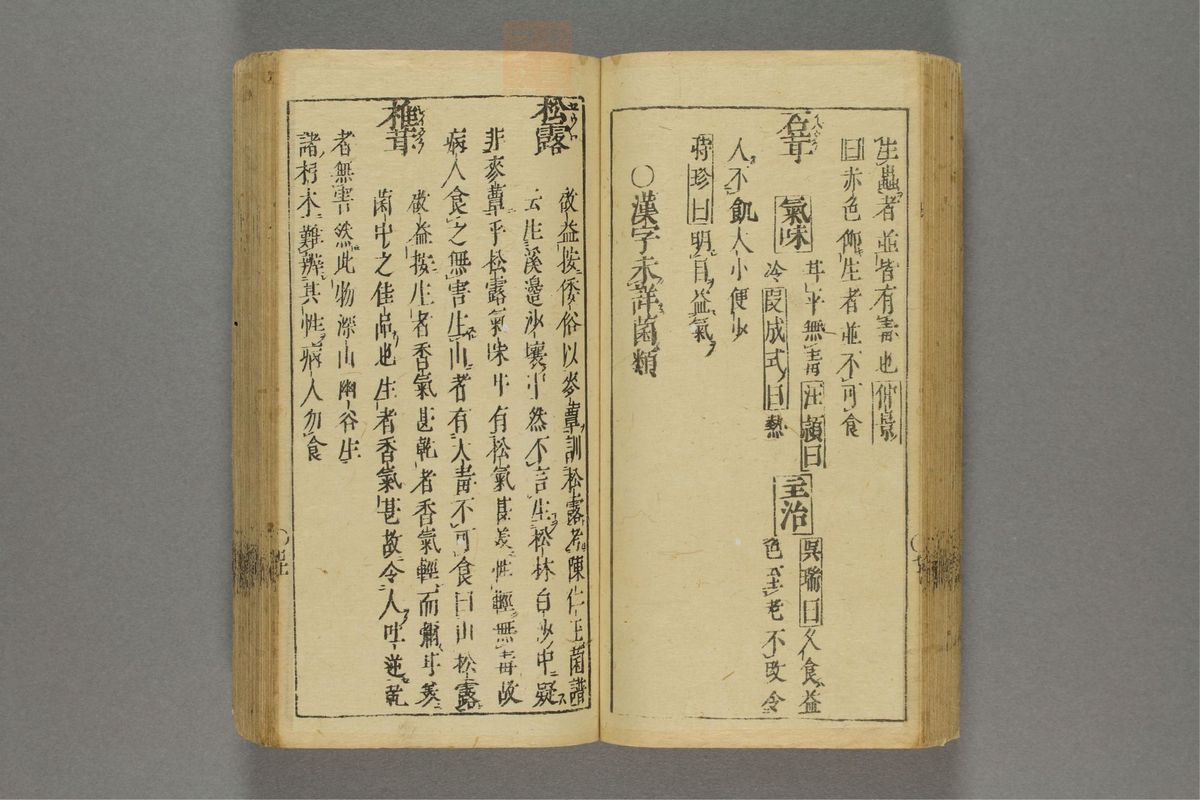 生蟲者並皆有毒也仲景
曰赤色仰生者並不可食
石耳
氣味
甘平無毒汪頴曰
冷段成式曰熱
主治
吳瑞曰久食益
色至老不改令
人不飢人小便少
時珍曰明目益氣
○漢字未詳菌類
松露
啟益按倭俗以麥蕈訓松露考陳仁玉菌譜
云生溪邉沙壤中然不言生松林白沙中疑
非麥蕈乎松露氣味平有松氣甚美性輕無毒故
病人食之無害生山者有大毒不可食曰山松露
椎茸
啟益按生者香氣甚乾者香氣輕而彌甘美
菌中之佳品也生者香氣甚故令人吐逆乾
者無害然此物深山幽谷生
諸朽木難辨其性病人勿食